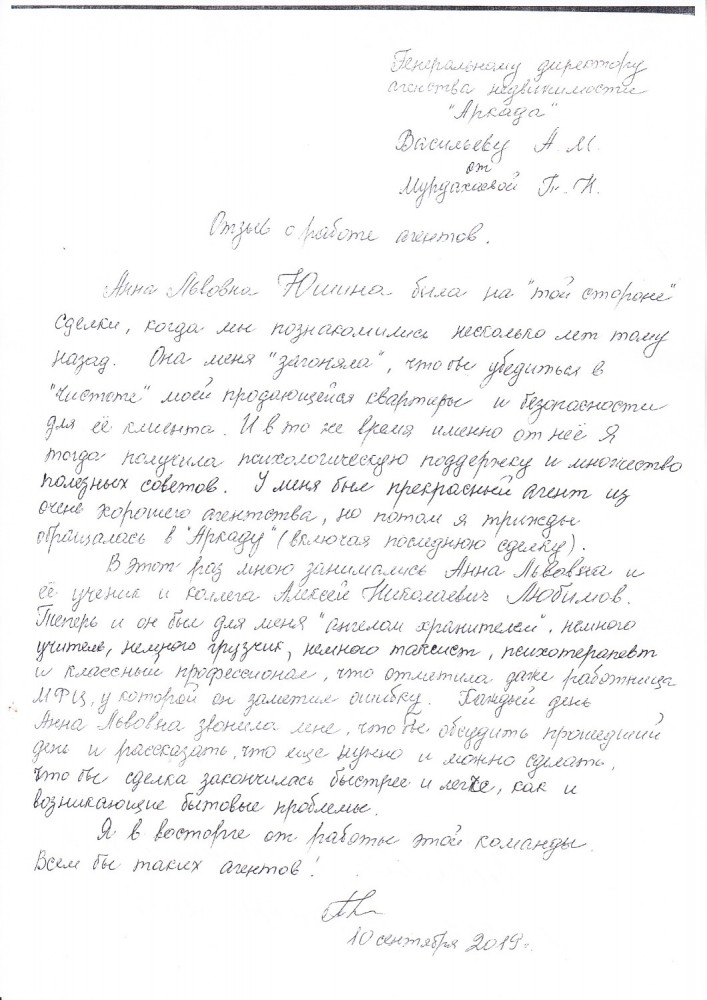 Генеральному директору
агенства недвижимости
"Аркада"
Васильеву А М.
от
Г. Н.
Отзыв о работе агентов.
Анна Львовна Юшина была на "той стороне"
сделки, когда мы познакомились несколько лет тому
назад. Она меня "загоняла", что бы убедиться в
"чистоте" моей продающейся квартиры и безопасности
для её клиента. И в то же время именно от неё я
тогда получила психологическую поддержку и множество
полезных советов. У меня был прекрасный агент из
очень хорошего агентства, но потом я трижды
обращалась в "Аркаду" (включая последнюю сделку).
В этот раз мною занимались Анна Львовна и
её ученик и коллега Алексей Николаевич Любимов.
Теперь и он был для меня "ангелом хранителем", немного
учитель, немного грузчик, немного таксист, психотерапевт
и классный профессионал, что отметила даже работница
МФЦ, у которой он заметил ошибку. Каждый день
Анна Львовна звонила мне, что бы обсудить прошедший
день и рассказать, что еще нужно и можно сделать,
что бы сделка закончилась быстрее и легче, как и
возникающие бытовые проблемы.
Я в восторге от работы этой команды.
Всем бы таких агентов!
10 сентября 2019 г.